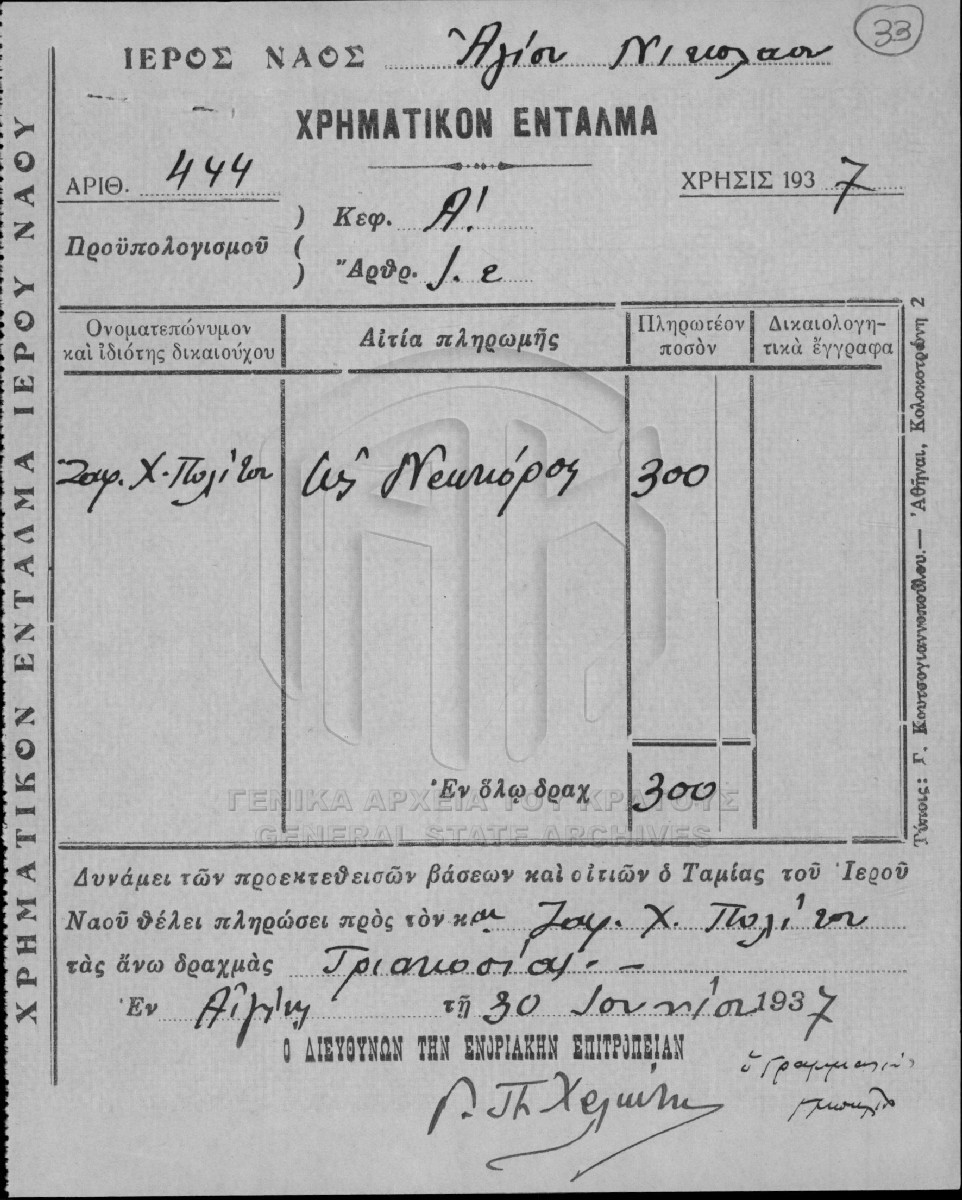 33
ΙΕΡΟΣ ΝΑΟΣ Ἁγίου Νικολάου
ΧΡΗΜΑΤΙΚΟΝ ΕΝΤΑΛΜΑ
ΑΡΙΘ. 444
ΧΡΗΣΙΣ 1937
Προϋπολογισμοῦ
Κεφ. Α!
Ἄρθρ. 1. ε
Ὀνοματεπώνυμον καὶ ἰδιότης δικαιούχου
Αἰτία πληρωμῆς
Πληρωτέον ποσὸν
Δικαιολογητικὰ ἔγγραφα
Ζαφ. Χ. Πολίτου
ὡς Νεωκόρος
300
Ἐν ὅλῳ δραχ 300
ΓΕΝΙΚΑ ΑΡΧΕΙΑ ΤΟΥ ΚΡΑΤΟΥΣ
GENERAL STATE ARCHIVES
Δυνάμει τῶν προεκτεθεισῶν βάσεων καὶ οἰτιῶν ὁ Ταμίας τοῦ Ἱεροῦ
Ναοῦ θέλει πληρώσει πρὸς τὸν κ Ζαφ. Χ. Πολίτου
τὰς ἄνω δραχμὰς Τριακοσίας. –
Ἐν Αἰγίνῃ τῇ 30 Ἰουνίου 1937
Ο ΔΙΕΥΘΥΝΩΝ ΤΗΝ ΕΝΟΡΙΑΚΗΝ ΕΠΙΤΡΟΠΕΙΑΝ
ὁ Γραμματεύς
ΧΡΗΜΑΤΙΚΟΝ ΕΝΤΑΛΜΑ ΙΕΡΟΥ ΝΑΟΥ
Τύποις: Γ. Κουτσογιαννοπούλου.— Ἀθῆναι, Κολοκοτρώνη 2